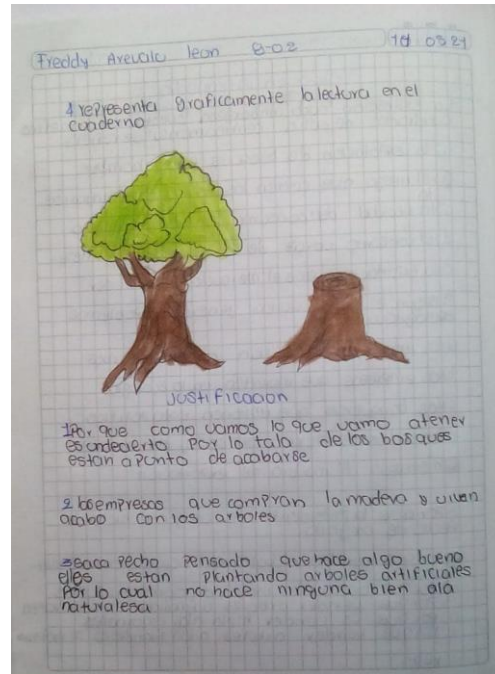 Freddy Arevalo leon 8-02 10 03 21
1 representa graficamente la lectura en el
cuaderno
Justificacion
1 Por que como vamos lo que vamo atener
es undecierto Por lo tala de los bosques
estan apunto de acabarse
2 las empresas que compran la madera y
acabo con los arboles
3 saca pecho pensado que hace algo bueno
elles estan plantando arboles artificiales
Por lo cual no hace ninguna bien ala
naturalesa